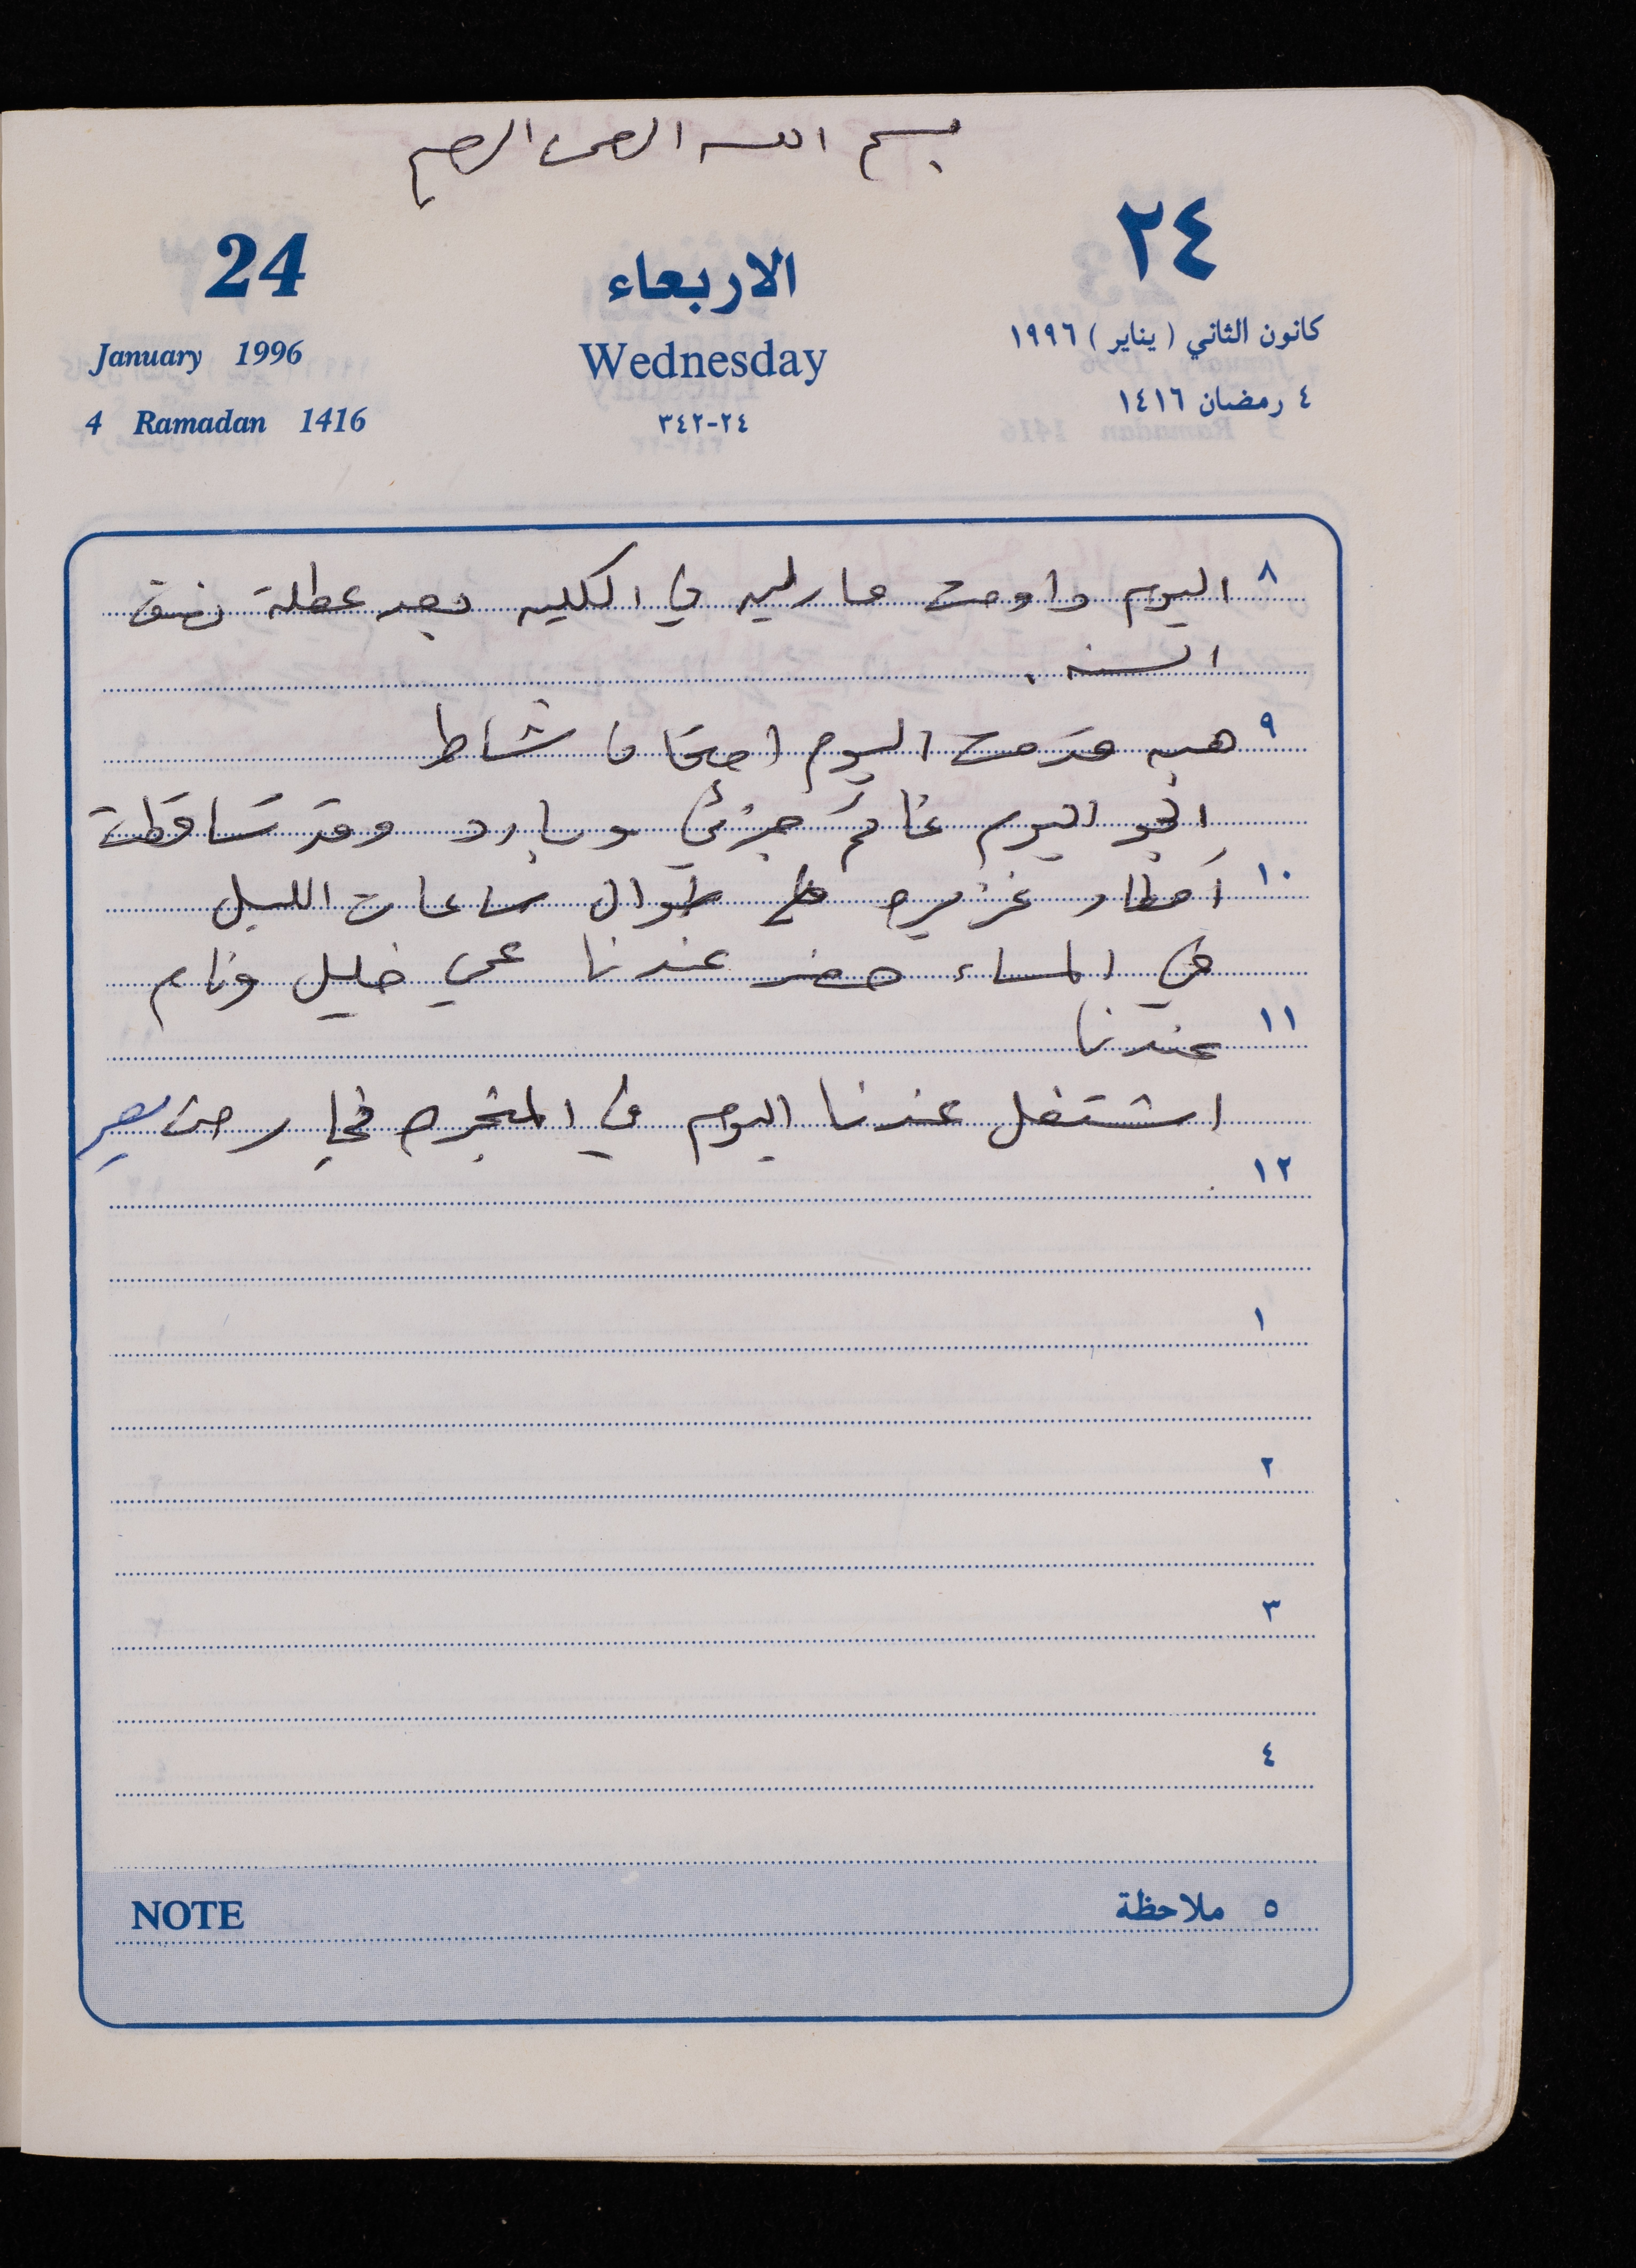 بسم الله الرحمن الرحيم
24
الاربعاء
٢٤
January 1996
Wednesday
كانون الثاني (يناير) ١٩٩٦
4 Ramadan 1416
٢٤-٣٤٢
٤ رمضان ١٤١٦
٨ اليوم داومت مارلين في الكليه بعد عطلة نصف
السنه.
٩ هبه قدمت اليوم امتحان نشاط
الجو اليوم غائم جزئي وبارد وقد تساقطت
١٠ أمطار غزيره طوال ساعات الليل
في المساء حضر عندنا عمي خليل ونام
١١ عندنا
اشتغل عندنا اليوم في المنجره
١٢
١
٢
٣
٤
NOTE ٥ ملاحظة